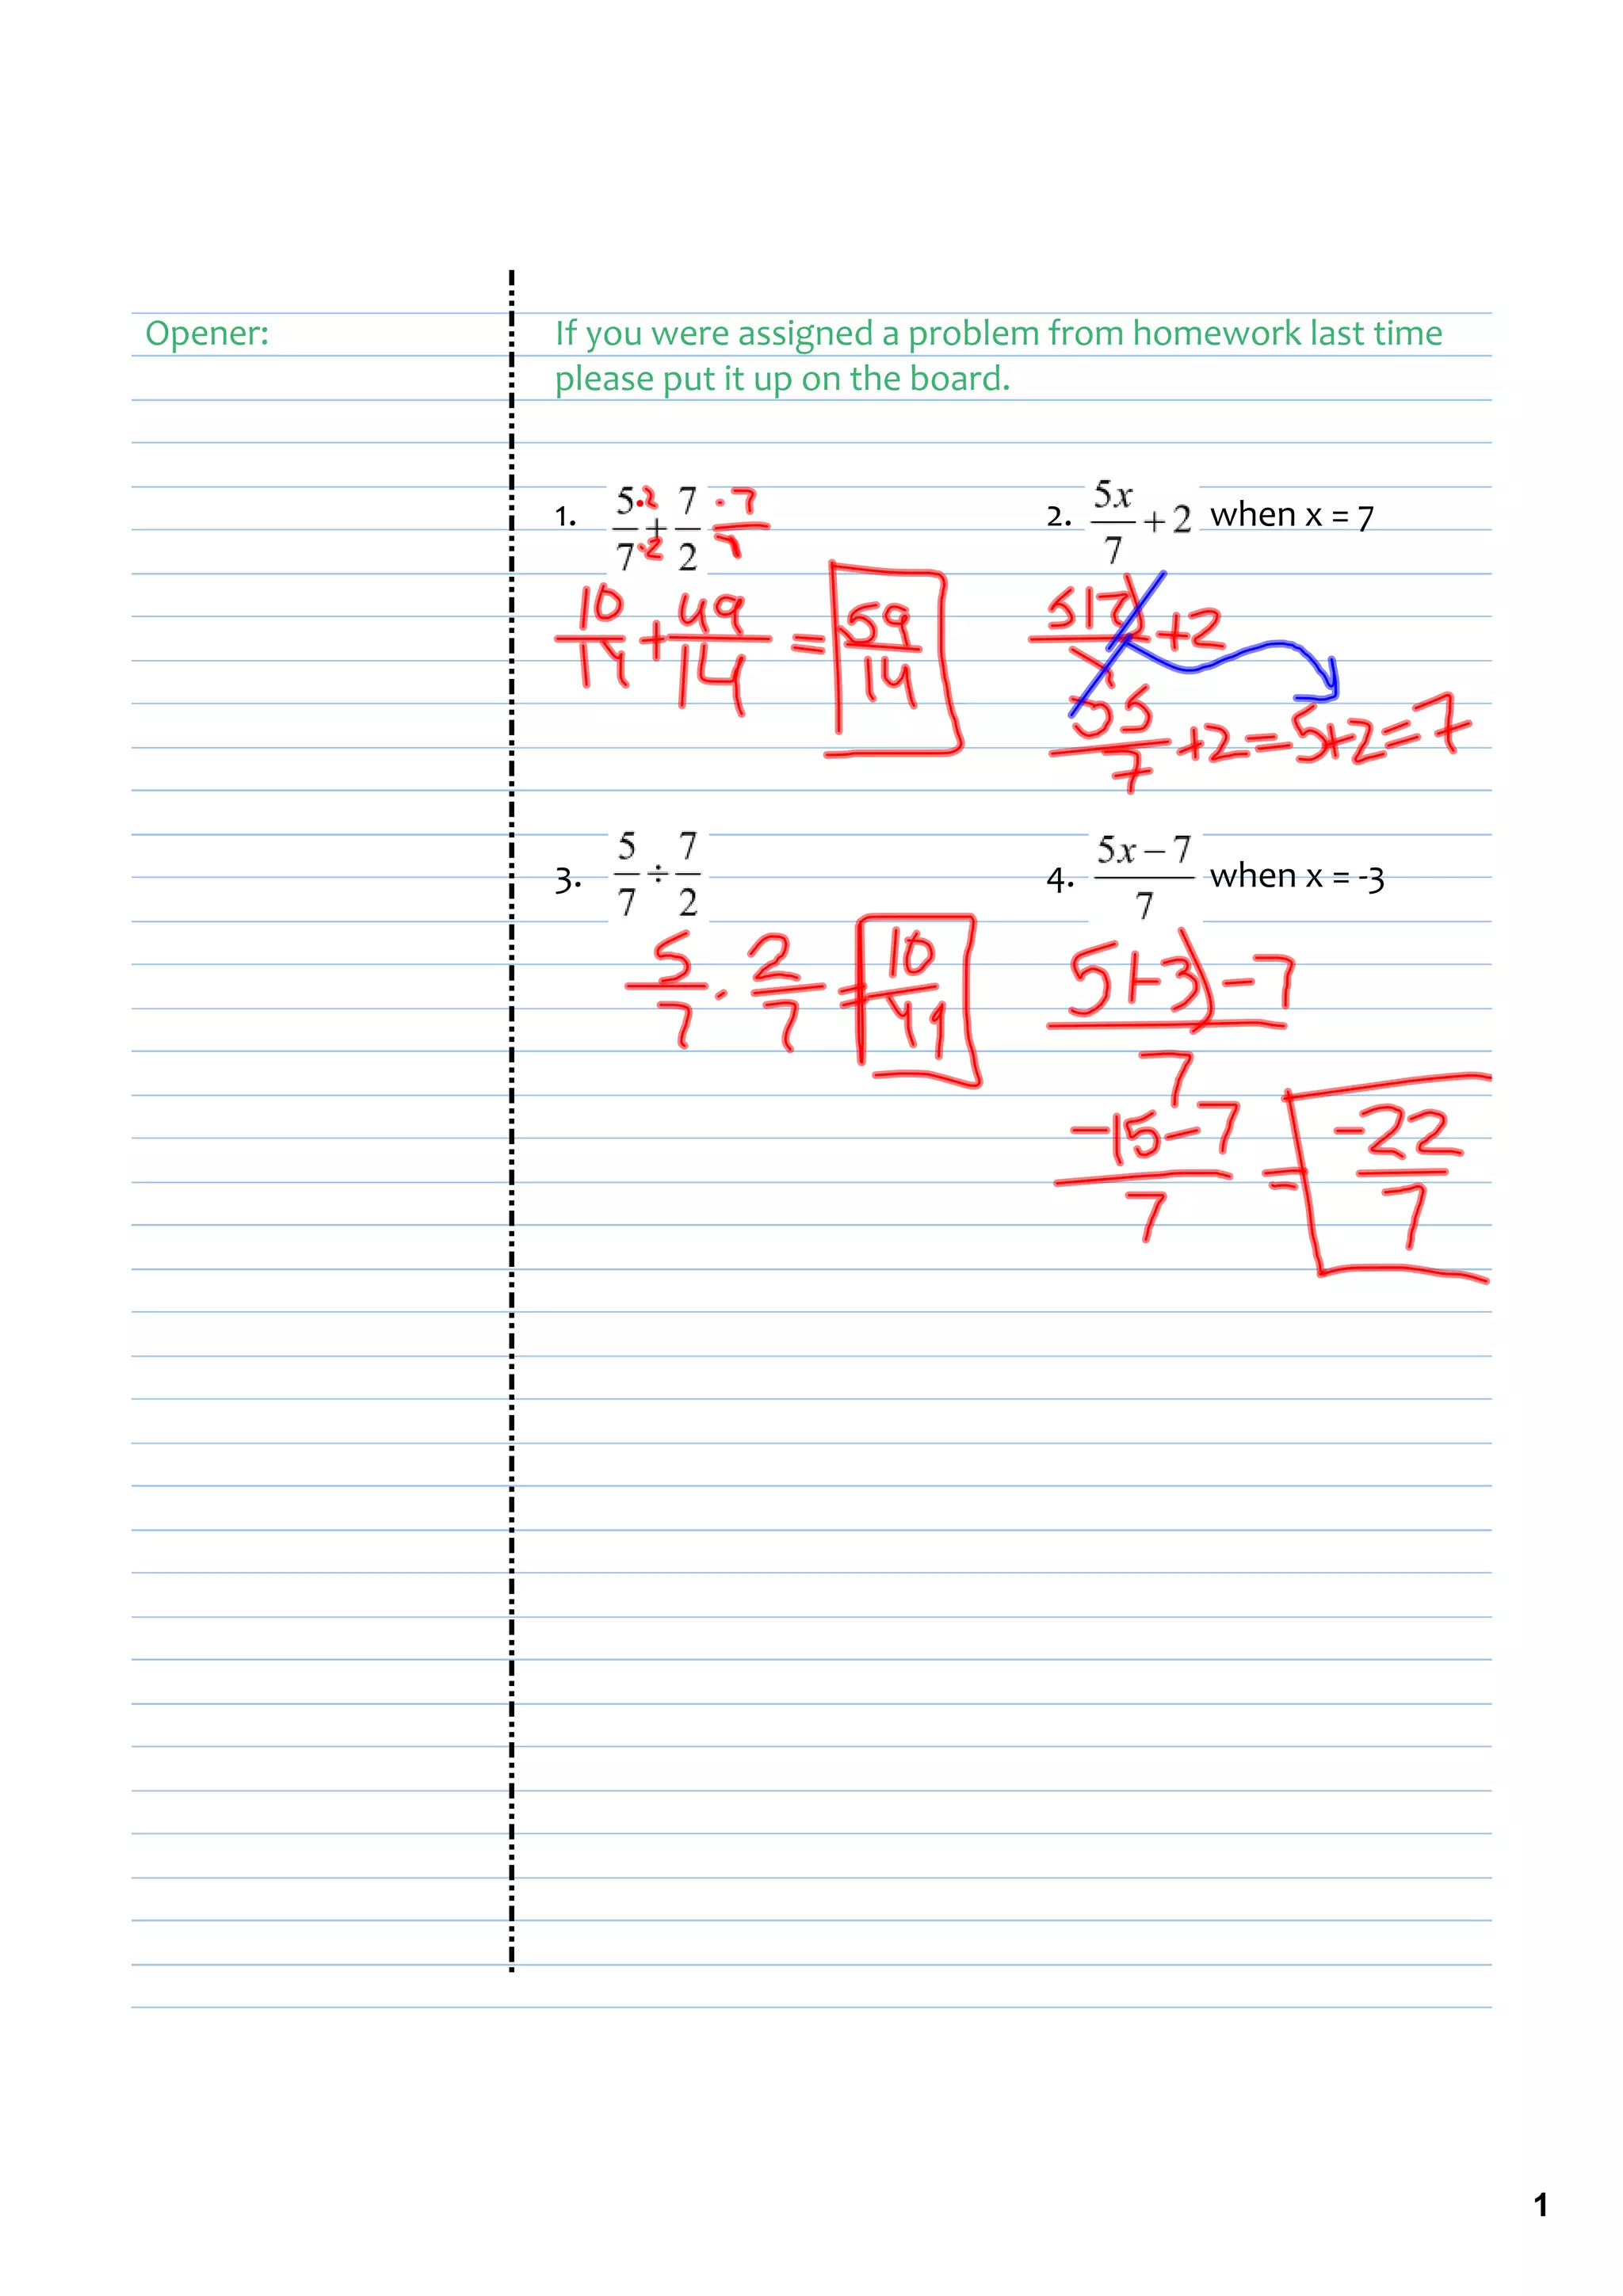 Opener:
If you were assigned a problem from homework last time
please put it up on the board.
1. 5/7 + 7/2
·2 ·7
·2
10/14 + 49/14 = 59/14
2. 5x/7 + 2 when x = 7
5(7) + 2
35/7 + 2 = 5 + 2 = 7
3. 5/7 ÷ 7/2
5/7 · 2/7 = 10/49
4. 5x − 7/7 when x = -3
5(-3) - 7
7
-15 - 7/7 = -22/7
1